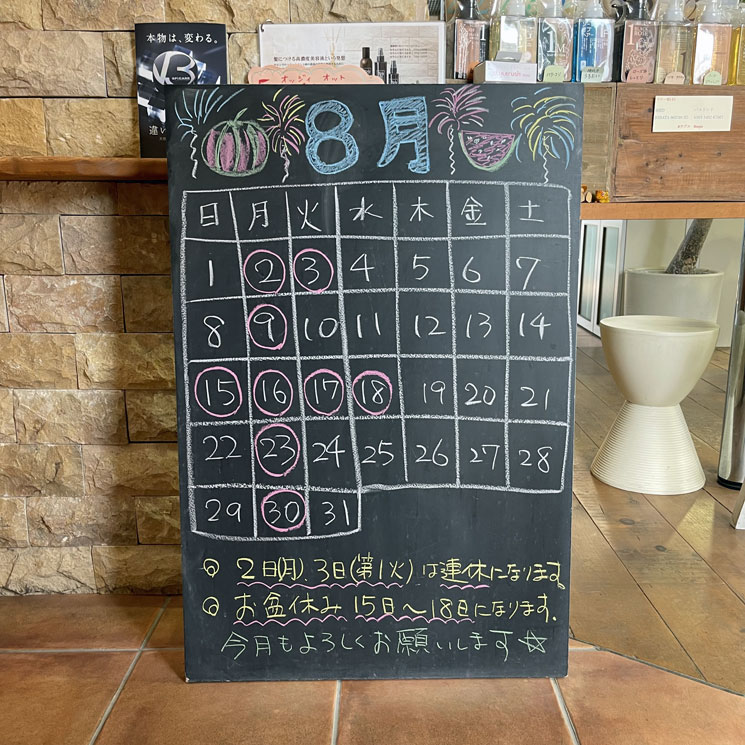 本物は、変わる。
髪につける高濃度美容液という発想
オッジィ オット
8月
日 月 火 水 木 金 土
1 2 3 4 5 6 7
8 9 10 11 12 13 14
15 16 17 18 19 20 21
22 23 24 25 26 27 28
29 30 31
◎ 2日(月).3日(第1火)は連休になります。
◎ お盆休み 15日〜18日になります.
今月もよろしくお願いします☆